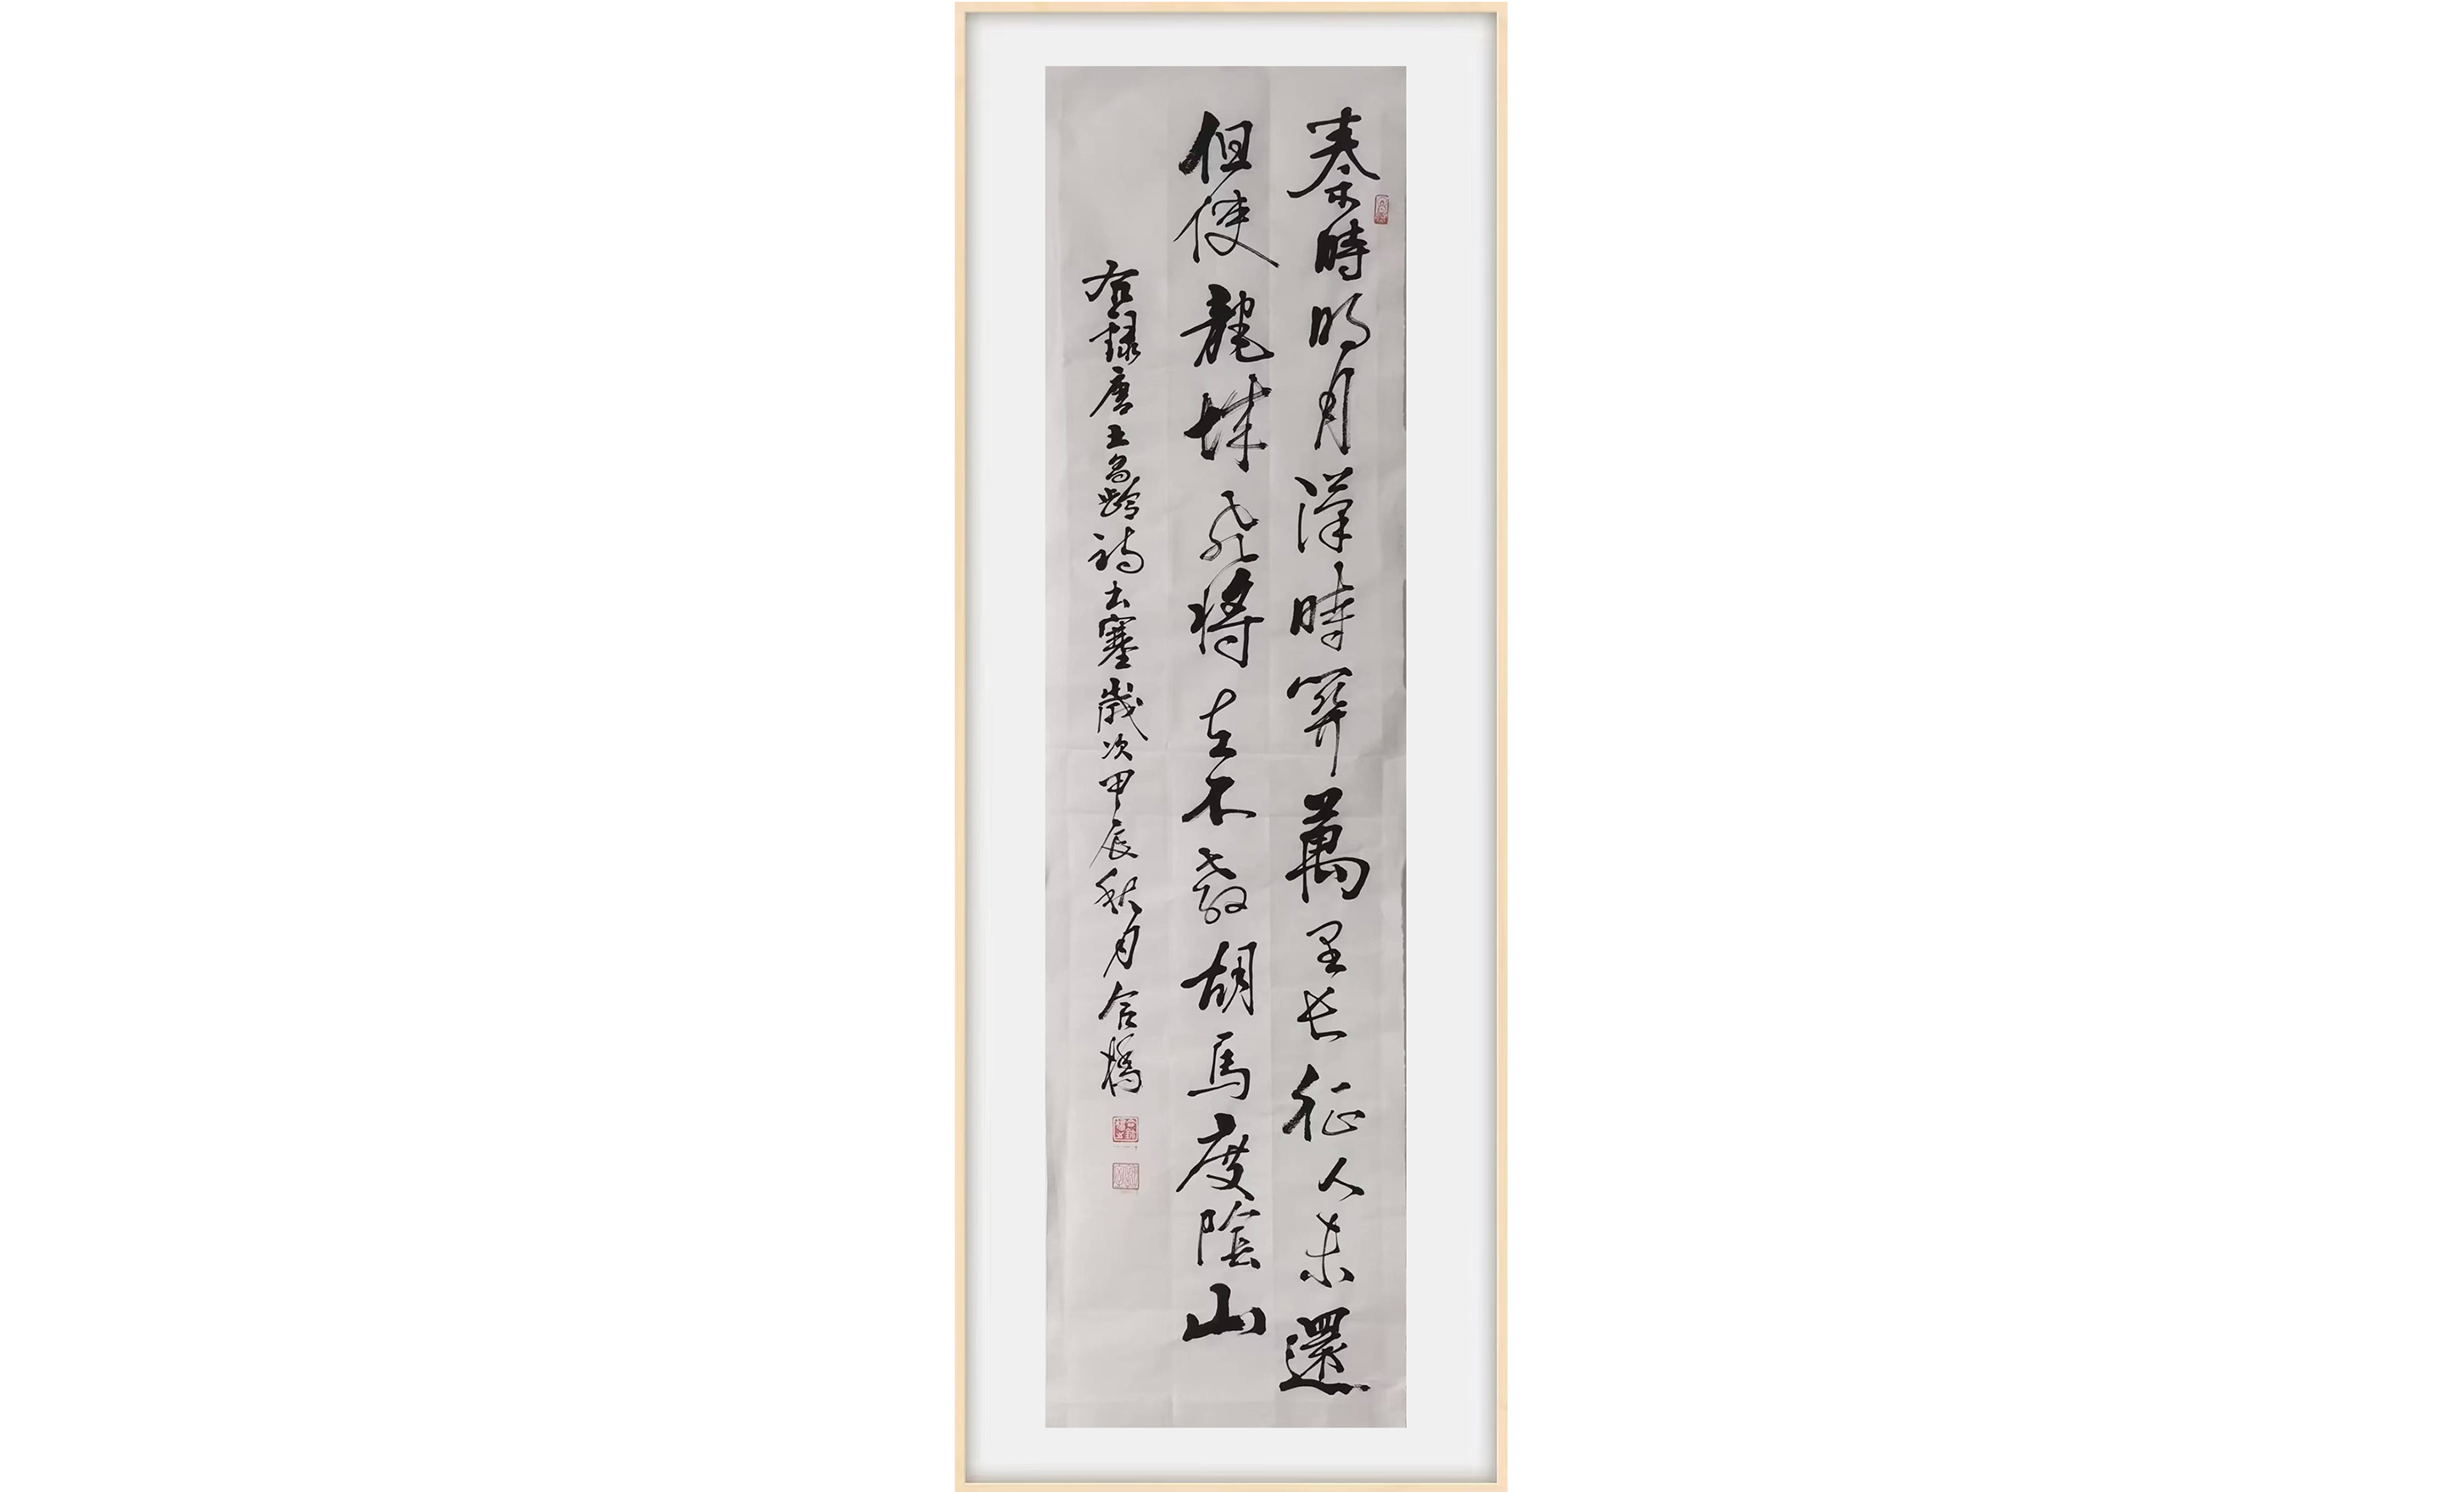 秦時明月漢時關萬里長征人未還
但使龍城飛將在不教胡馬度陰山
右錄唐王昌齡詩出塞歲次甲辰秋月合橋